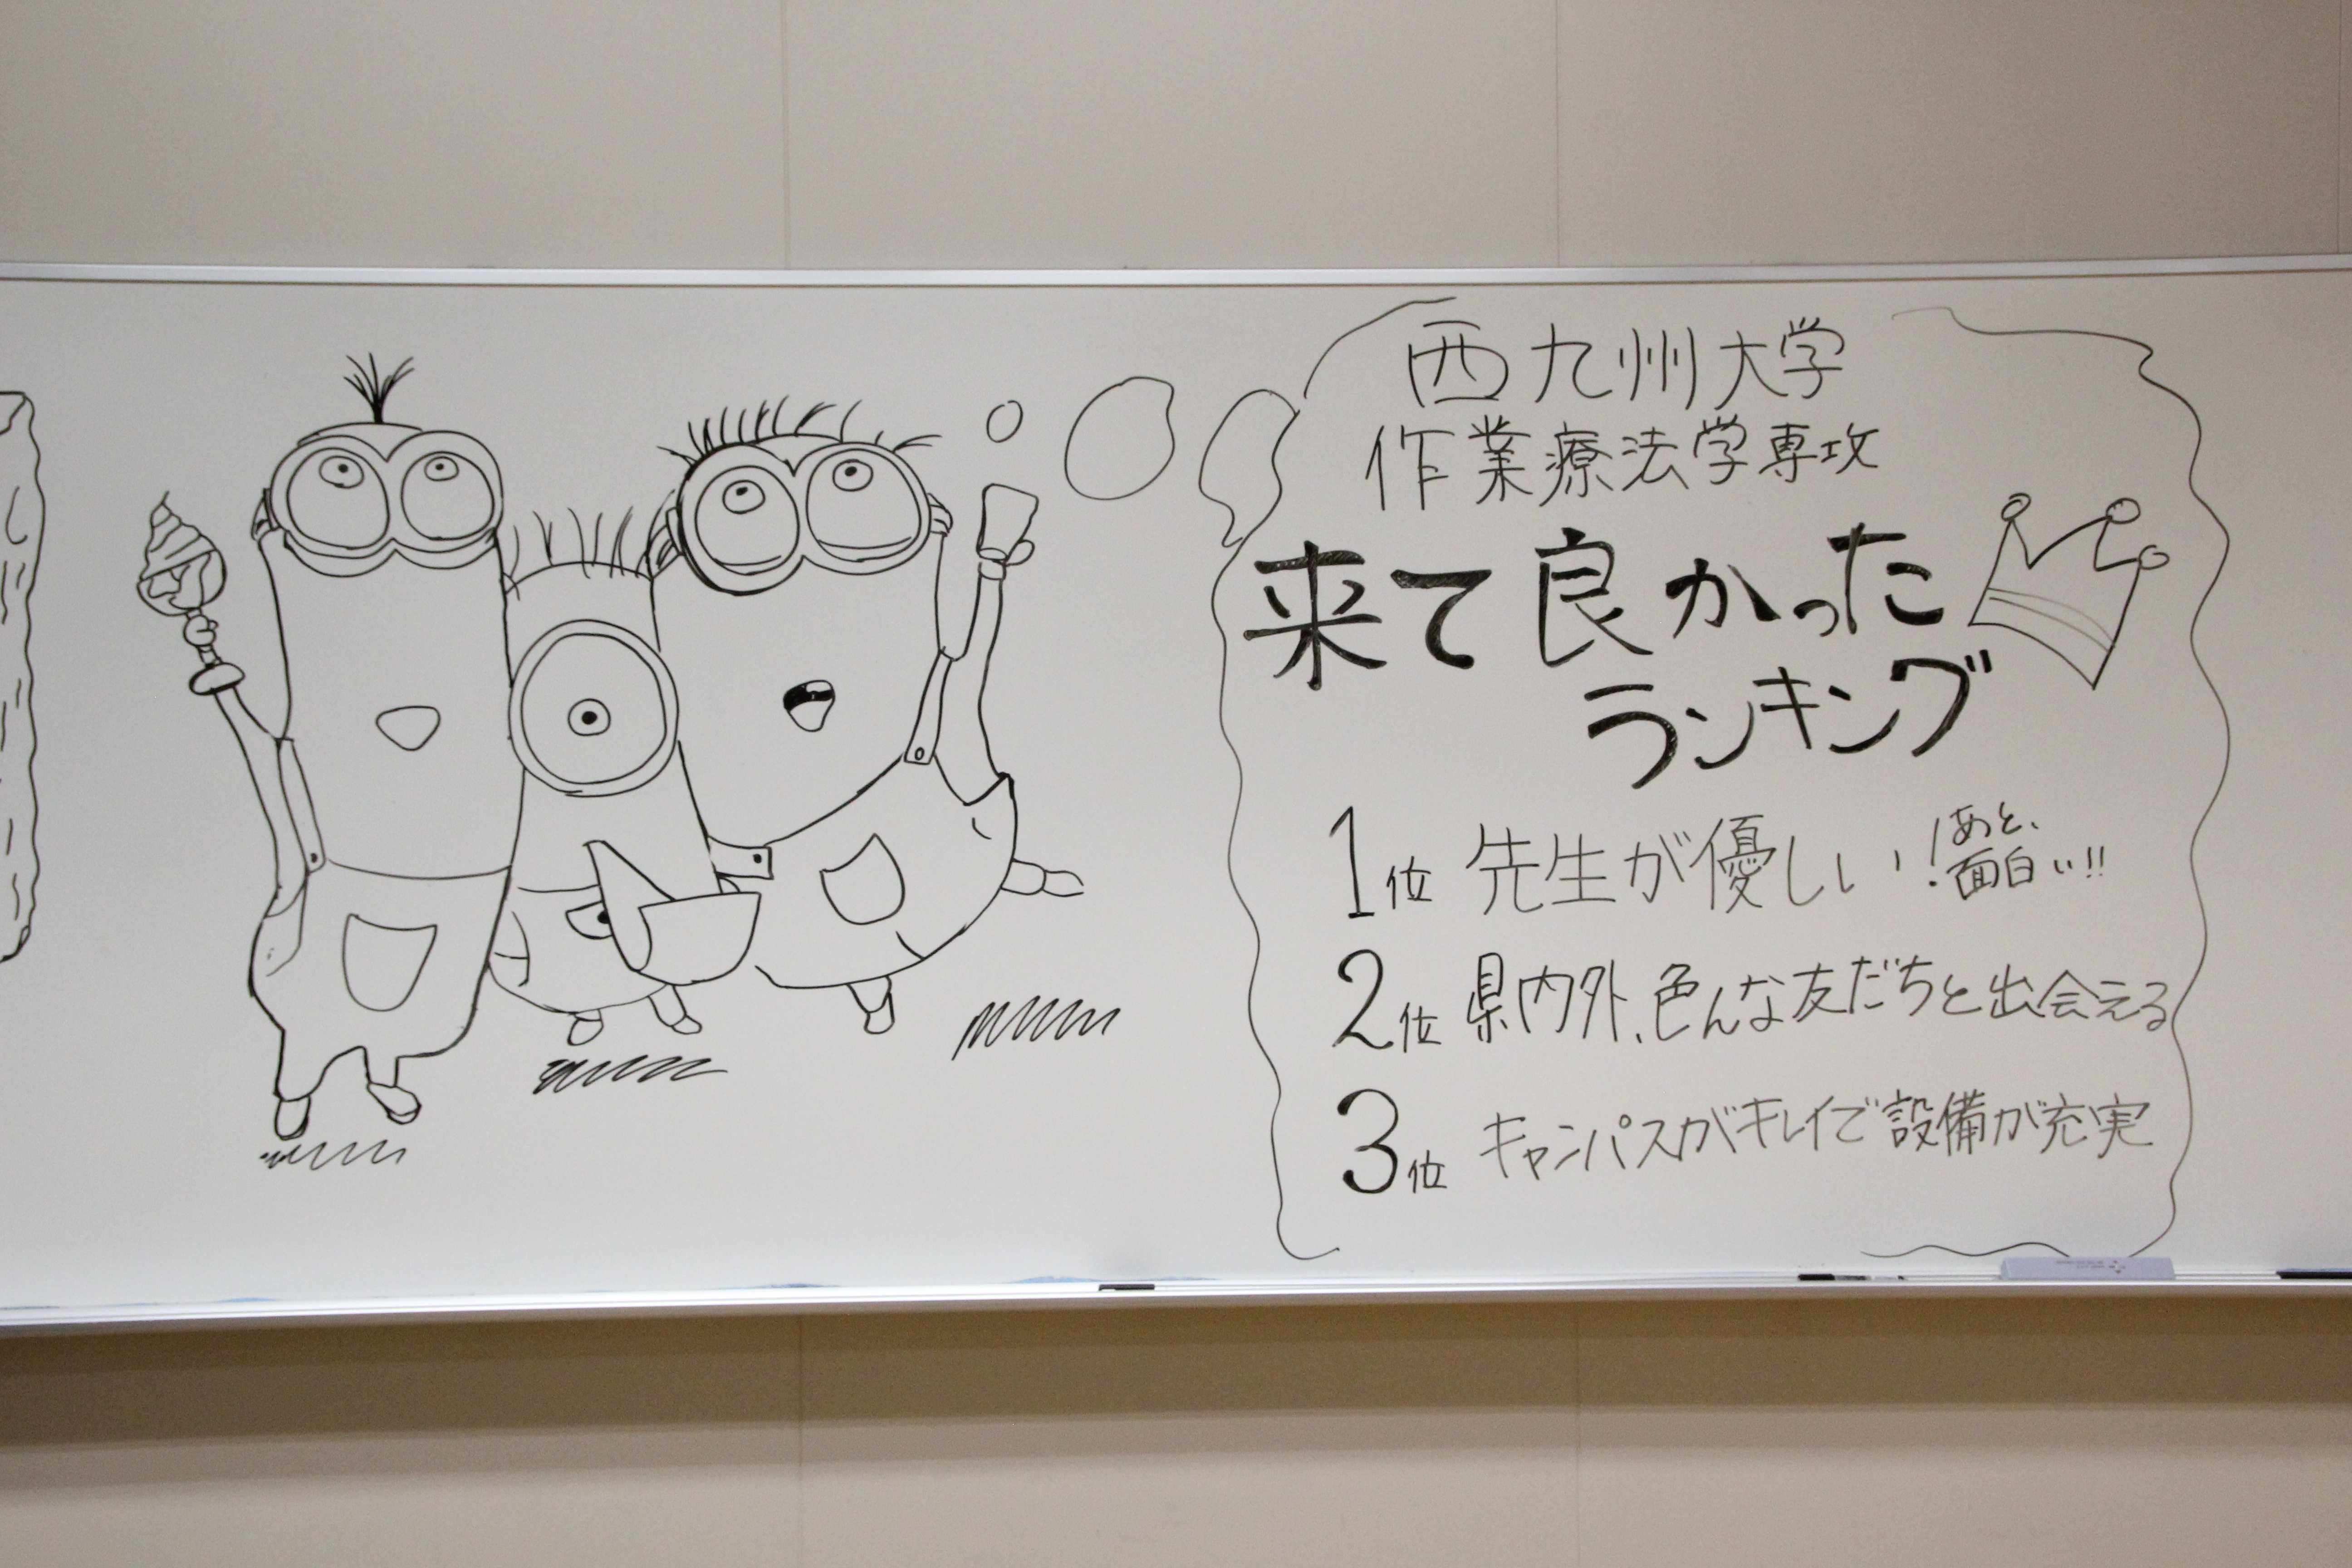 西九州大学
作業療法学専攻
来て良かった
ランキング
1位 先生が優しい! あと、面白い!!
2位 県内外、色んな友だちと出会える
3位 キャンパスがキレイで設備が充実